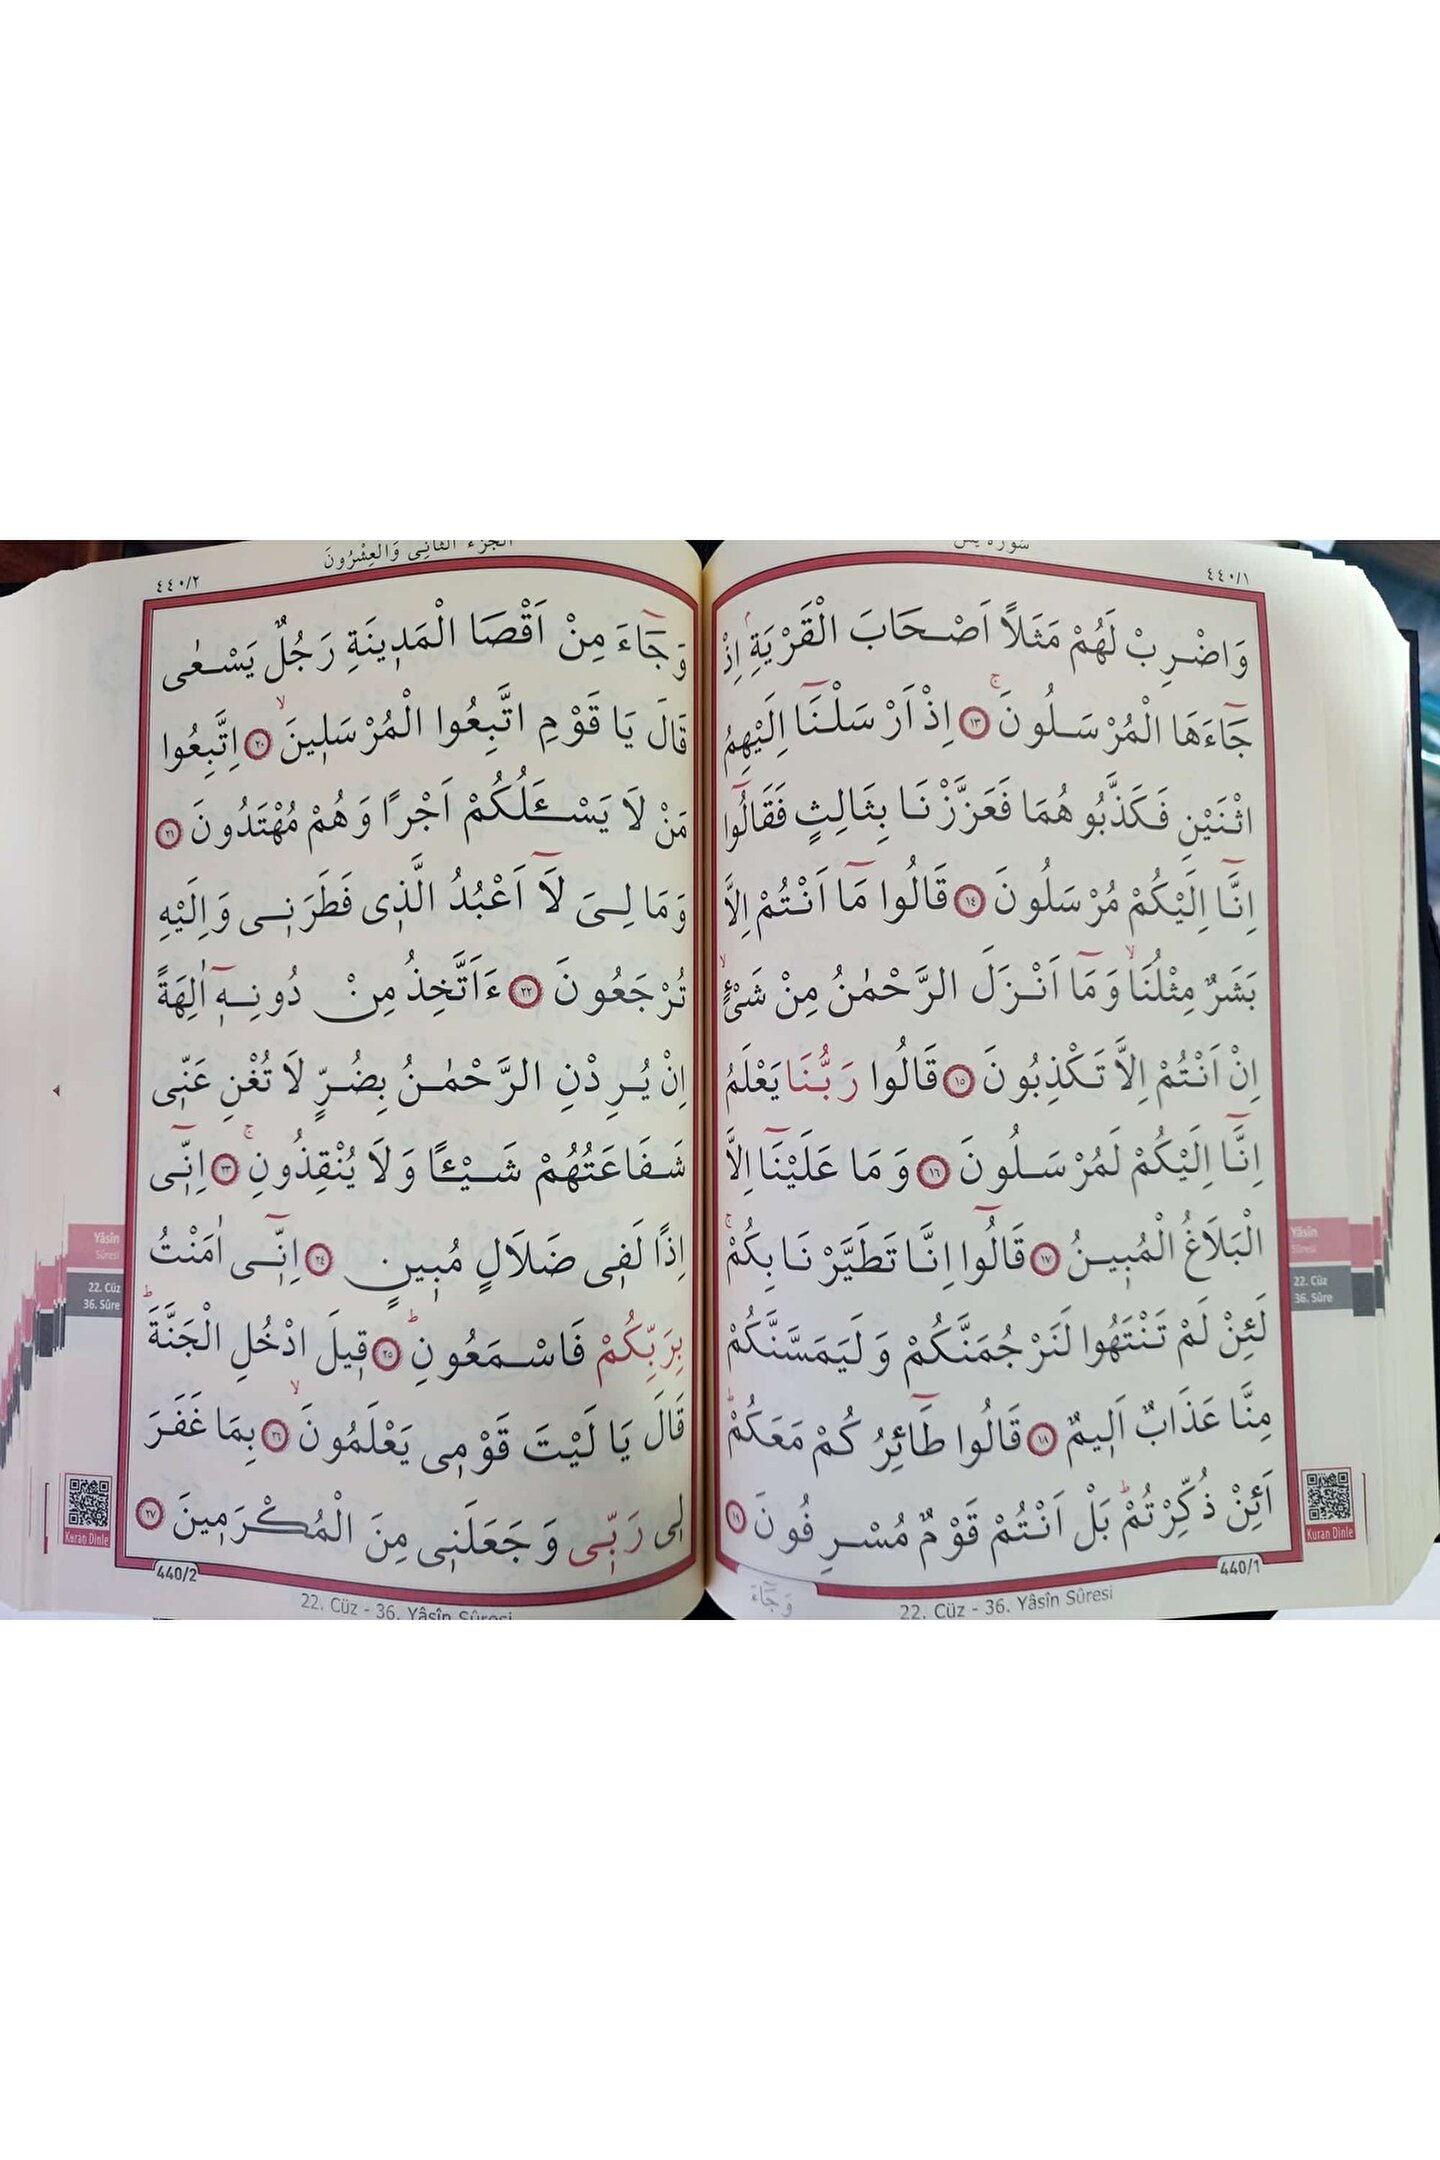 سورة يس
٤٤٠/١
وَاضْرِبْ لَهُمْ مَثَلاً اَصْحَابَ الْقَرْيَةِۢ اِذْ
جَٓاءَهَا الْمُرْسَلُونَۚ ﴿١٣﴾ اِذْ اَرْسَلْنَٓا اِلَيْهِمُ
اثْنَيْنِ فَكَذَّبُوهُمَا فَعَزَّزْنَا بِثَالِثٍ فَقَالُٓوا
اِنَّٓا اِلَيْكُمْ مُرْسَلُونَ ﴿١٤﴾ قَالُوا مَٓا اَنْتُمْ اِلَّا
بَشَرٌ مِثْلُنَاۙ وَمَٓا اَنْزَلَ الرَّحْمٰنُ مِنْ شَيْءٍۙ
اِنْ اَنْتُمْ اِلَّا تَكْذِبُونَ ﴿١٥﴾ قَالُوا رَبُّنَا يَعْلَمُ
اِنَّٓا اِلَيْكُمْ لَمُرْسَلُونَ ﴿١٦﴾ وَمَا عَلَيْنَٓا اِلَّا
الْبَلَاغُ الْمُبٖينُ ﴿١٧﴾ قَالُٓوا اِنَّا تَطَيَّرْنَا بِكُمْۚ
لَئِنْ لَمْ تَنْتَهُوا لَنَرْجُمَنَّكُمْ وَلَيَمَسَّنَّكُمْ
مِنَّا عَذَابٌ اَلٖيمٌ ﴿١٨﴾ قَالُوا طَٓائِرُكُمْ مَعَكُمْؕ
اَئِنْ ذُكِّرْتُمْؕ بَلْ اَنْتُمْ قَوْمٌ مُسْرِفُونَ ﴿١٩﴾
440/1
وَجَٓاءَ
22. Cüz - 36. Yâsîn Sûresi
Yâsîn
Sûresi
22. Cüz
36. Sûre
Kuran Dinle
الجزء الثانى وَالعِشْرُونَ
٤٤٠/٢
وَجَٓاءَ مِنْ اَقْصَا الْمَدٖينَةِ رَجُلٌ يَسْعٰى
قَالَ يَا قَوْمِ اتَّبِعُوا الْمُرْسَلٖينَۙ ﴿٢٠﴾ اِتَّبِعُوا
مَنْ لَا يَسْـَٔلُكُمْ اَجْرًا وَهُمْ مُهْتَدُونَ ﴿٢١﴾
وَمَا لِيَ لَٓا اَعْبُدُ الَّذٖى فَطَرَنٖى وَاِلَيْهِ
تُرْجَعُونَ ﴿٢٢﴾ ءَاَتَّخِذُ مِنْ دُونِهٖٓ اٰلِهَةً
اِنْ يُرِدْنِ الرَّحْمٰنُ بِضُرٍّ لَا تُغْنِ عَنّٖى
شَفَاعَتُهُمْ شَيْـًٔا وَلَا يُنْقِذُونِۚ ﴿٢٣﴾ اِنّٖٓى
اِذًا لَفٖى ضَلَالٍ مُبٖينٍ ﴿٢٤﴾ اِنّٖٓى اٰمَنْتُ
بِرَبِّكُمْ فَاسْمَعُونِؕ ﴿٢٥﴾ قٖيلَ ادْخُلِ الْجَنَّةَؕ
قَالَ يَا لَيْتَ قَوْمٖى يَعْلَمُونَۙ ﴿٢٦﴾ بِمَا غَفَرَ
لٖى رَبّٖى وَجَعَلَنٖى مِنَ الْمُكْرَمٖينَ ﴿٢٧﴾
440/2
22. Cüz - 36. Yâsîn Sûresi
Yâsîn
Sûresi
22. Cüz
36. Sûre
Kuran Dinle